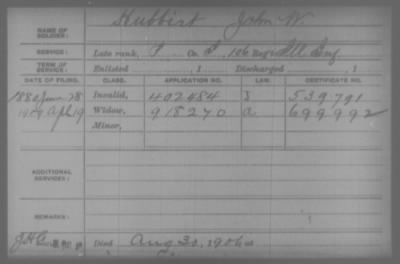 NAME OF SOLDIER: Hubbirt John W.
SERVICE: Late rank, P Co. , 106 Reg't Ill Inf
TERM OF SERVICE: Enlisted , 1 Discharged , 1
DATE OF FILING. CLASS. APPLICATION NO. LAW. CERTIFICATE NO.
1880 June 28 Invalid, 402484 J 539791
Apl 19 Widow, 918270 a 699992
Minor,
ADDITIONAL SERVICES:
REMARKS:
Died Aug 30, 1906